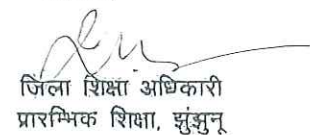 जिला शिक्षा अधिकारी
प्रारम्भिक शिक्षा, झुंझुनू